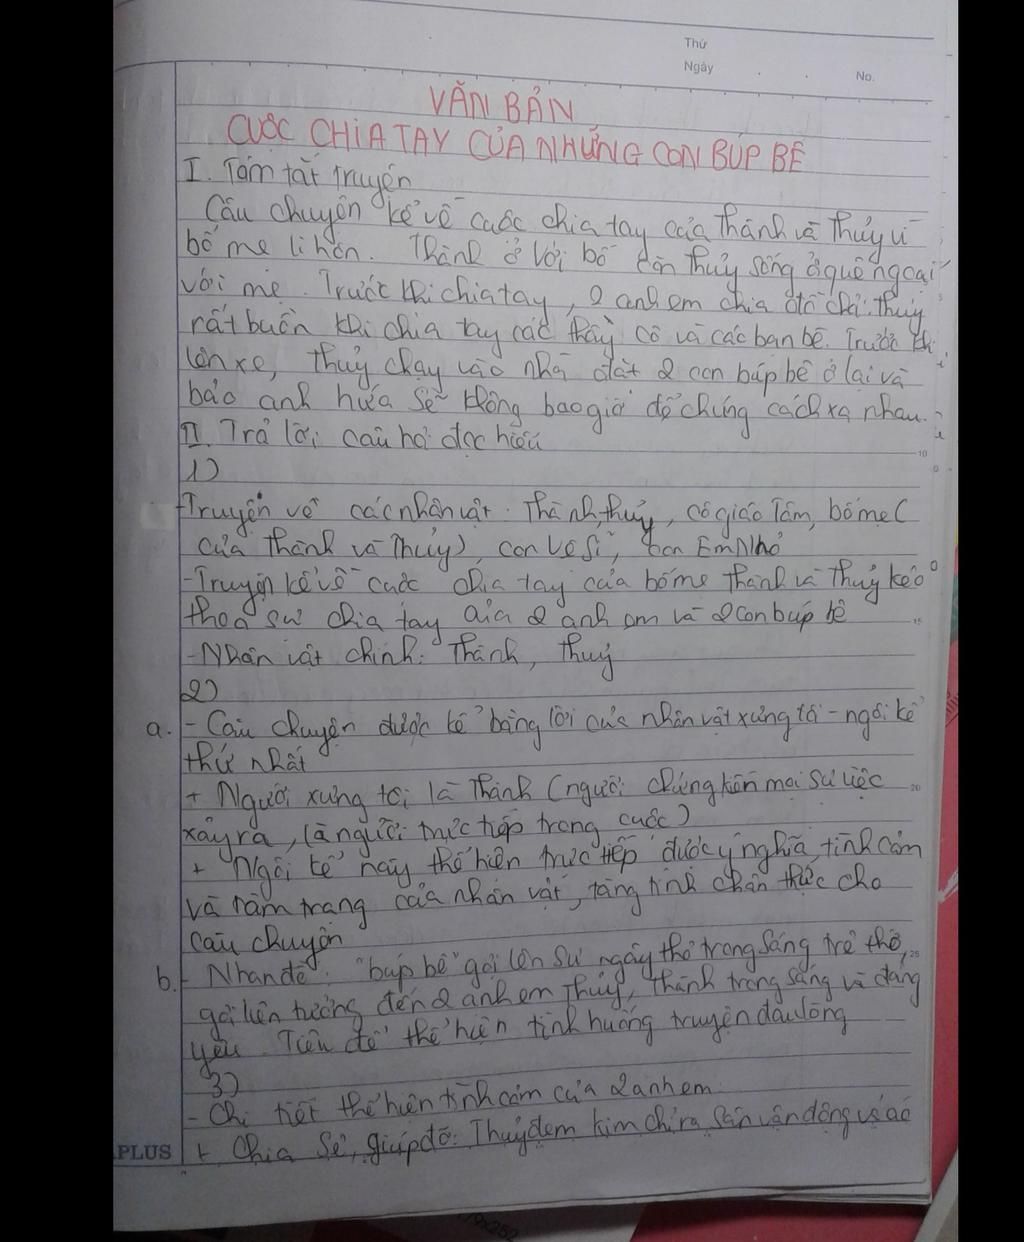 Thứ
Ngày
No.
VĂN BẢN
CUỘC CHIA TAY CỦA NHỮNG CON BÚP BÊ
I. Tóm tắt truyện
Câu chuyện kể về cuộc chia tay của Thành và Thủy vì
bố mẹ li hôn. Thành ở với bố còn Thủy sống ở quê ngoại
với mẹ. Trước khi chia tay, 2 anh em chia đồ chơi. Thủy
rất buồn khi chia tay các thầy cô và các bạn bè. Trước khi
lên xe, Thủy chạy vào nhà đặt 2 con búp bê ở lại và
bảo anh hứa sẽ không bao giờ để chúng cách xa nhau.
II. Trả lời câu hỏi đọc hiểu
10
1)
-Truyện về các nhân vật: Thành, Thủy, cô giáo Tâm, bố mẹ (
của Thành và Thủy), con Vệ Sĩ, con Em Nhỏ
-Truyện kể về cuộc chia tay của bố mẹ Thành và Thủy kéo
theo sự chia tay của 2 anh em và 2 con búp bê
15
-Nhân vật chính: Thành, Thủy
2)
a. - Câu chuyện được kể bằng lời của nhân vật xưng tôi - ngôi kể
thứ nhất
+ Người xưng tôi là Thành (người chứng kiến mọi sự việc
20
xảy ra, là người trực tiếp trong cuộc)
+ Ngôi kể này thể hiện trực tiếp được ý nghĩa, tình cảm
và tâm trạng của nhân vật, tăng tính chân thực cho
câu chuyện
b. - Nhan đề: "búp bê" gợi lên sự ngây thơ trong sáng trẻ thơ,
25
gợi liên tưởng đến 2 anh em Thủy, Thành trong sáng và đáng
yêu. Tiêu đề thể hiện tình huống truyện đau lòng
3)
- Chi tiết thể hiện tình cảm của 2 anh em
+ Chia sẻ, giúp đỡ: Thủy đem kim chỉ ra sân vận động vá áo
PLUS